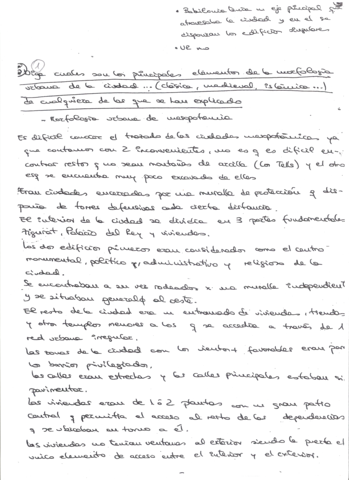 • Babilonia tenía un eje principal q
atravesaba la ciudad y en el se
disponían los edificios singulares
• UR no
2) ① Diga cuáles son los principales elementos de la morfología
urbana de la ciudad ... (clásica, medieval, islámica ...)
de cualquiera de las que se han explicado
- Morfología urbana de mesopotamia
Es dificil conocer el trazado de las ciudades mesopotámicas ya
que contamos con 2 inconvenientes, uno es q es dificil en-
contrar restos q no sean montañas de arcilla (los Tels) y el otro
es q se encuentra muy poco excavado de ellas
Eran ciudades encerradas por una muralla de protección q dis-
ponía de torres defensivas cada cierta distancia.
El interior de la ciudad se dividía en 3 partes fundamentales
Zigurat, Palacio del Rey y viviendas.
Los dos edificios primeros eran considerados como el centro
monumental, político y administrativo y religioso de la
ciudad.
Se encontraban a su vez rodeados x una muralla independient
y se situaban general/ al oeste.
El resto de la ciudad era un entramado de viviendas, tiendas
y otros templos menores a los q se accedía a través de 1
red urbana irregular.
Las zonas de la ciudad con los vientos + favorables eran par
los barrios privilegiados.
Las calles eran estrechas y las calles principales estaban si
pavimentar.
Las viviendas eran de 1 o 2 plantas con un gran patio
central q permitía el acceso al resto de las dependencias
q se ubicaban en torno a él.
Las viviendas no tenían ventanas al exterior siendo la puerta el
unico elemento de acceso entre el interior y el exterior.